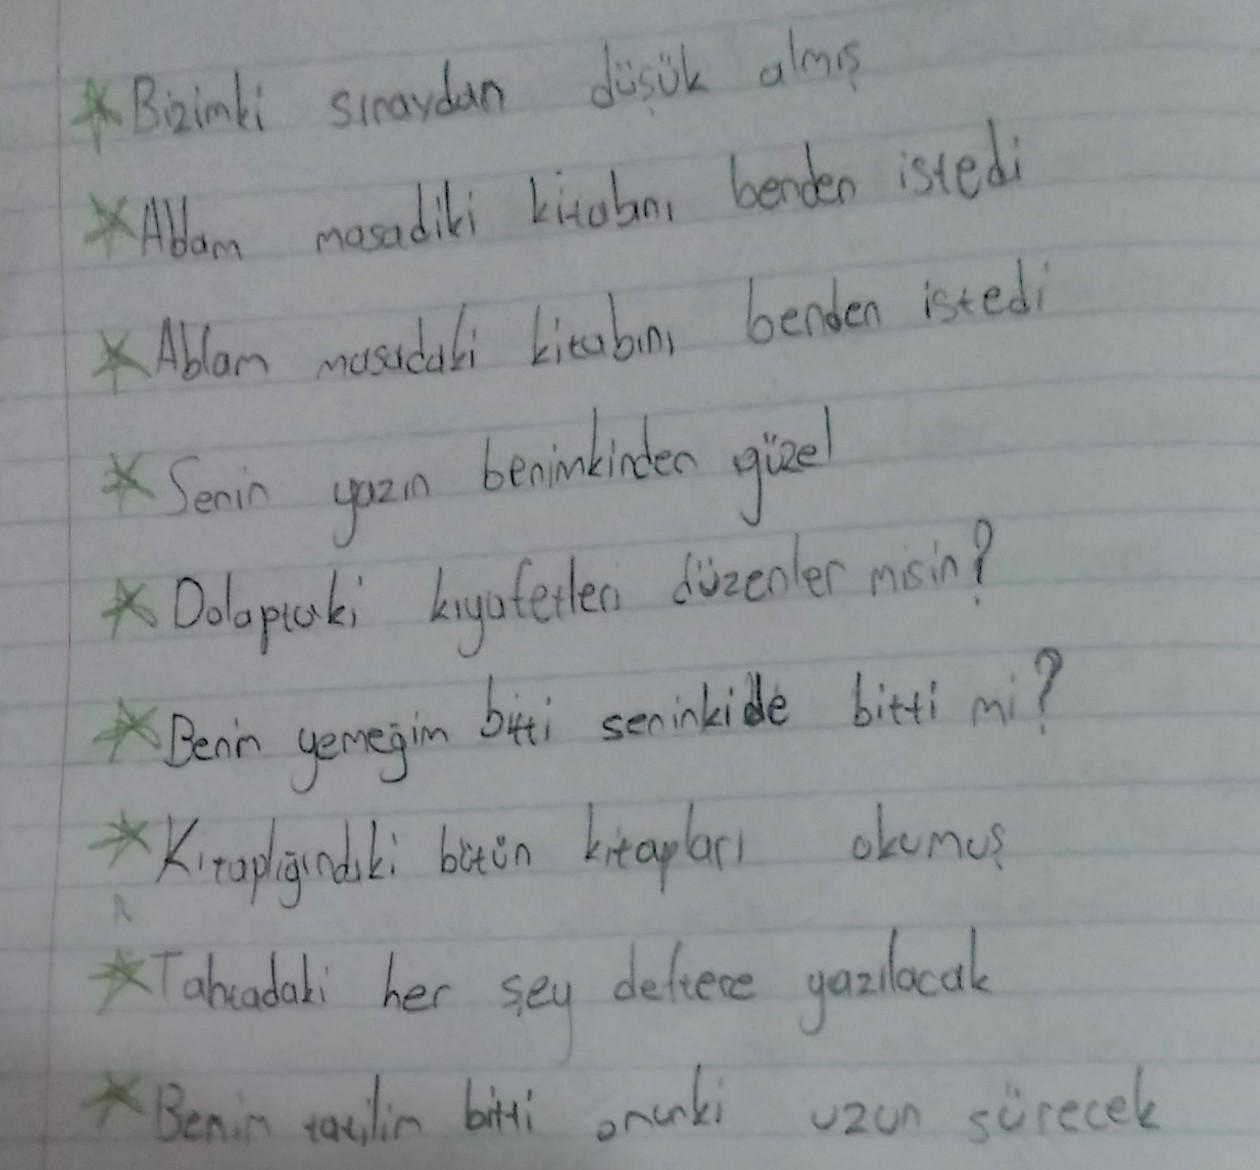 Bizimki sınavdan düşük almış
Ablam masadiki kitabını benden istedi
Ablam masadaki kitabını benden istedi
Senin yazın benimkinden güzel
Dolaptaki kıyafetleri düzenler misin?
Benim yemeğim bitti seninkide bitti mi?
Kitaplığındaki bütün kitapları okumuş
Tahtadaki her şey deftere yazılacak
Benim tatilim bitti onunki uzun sürecek